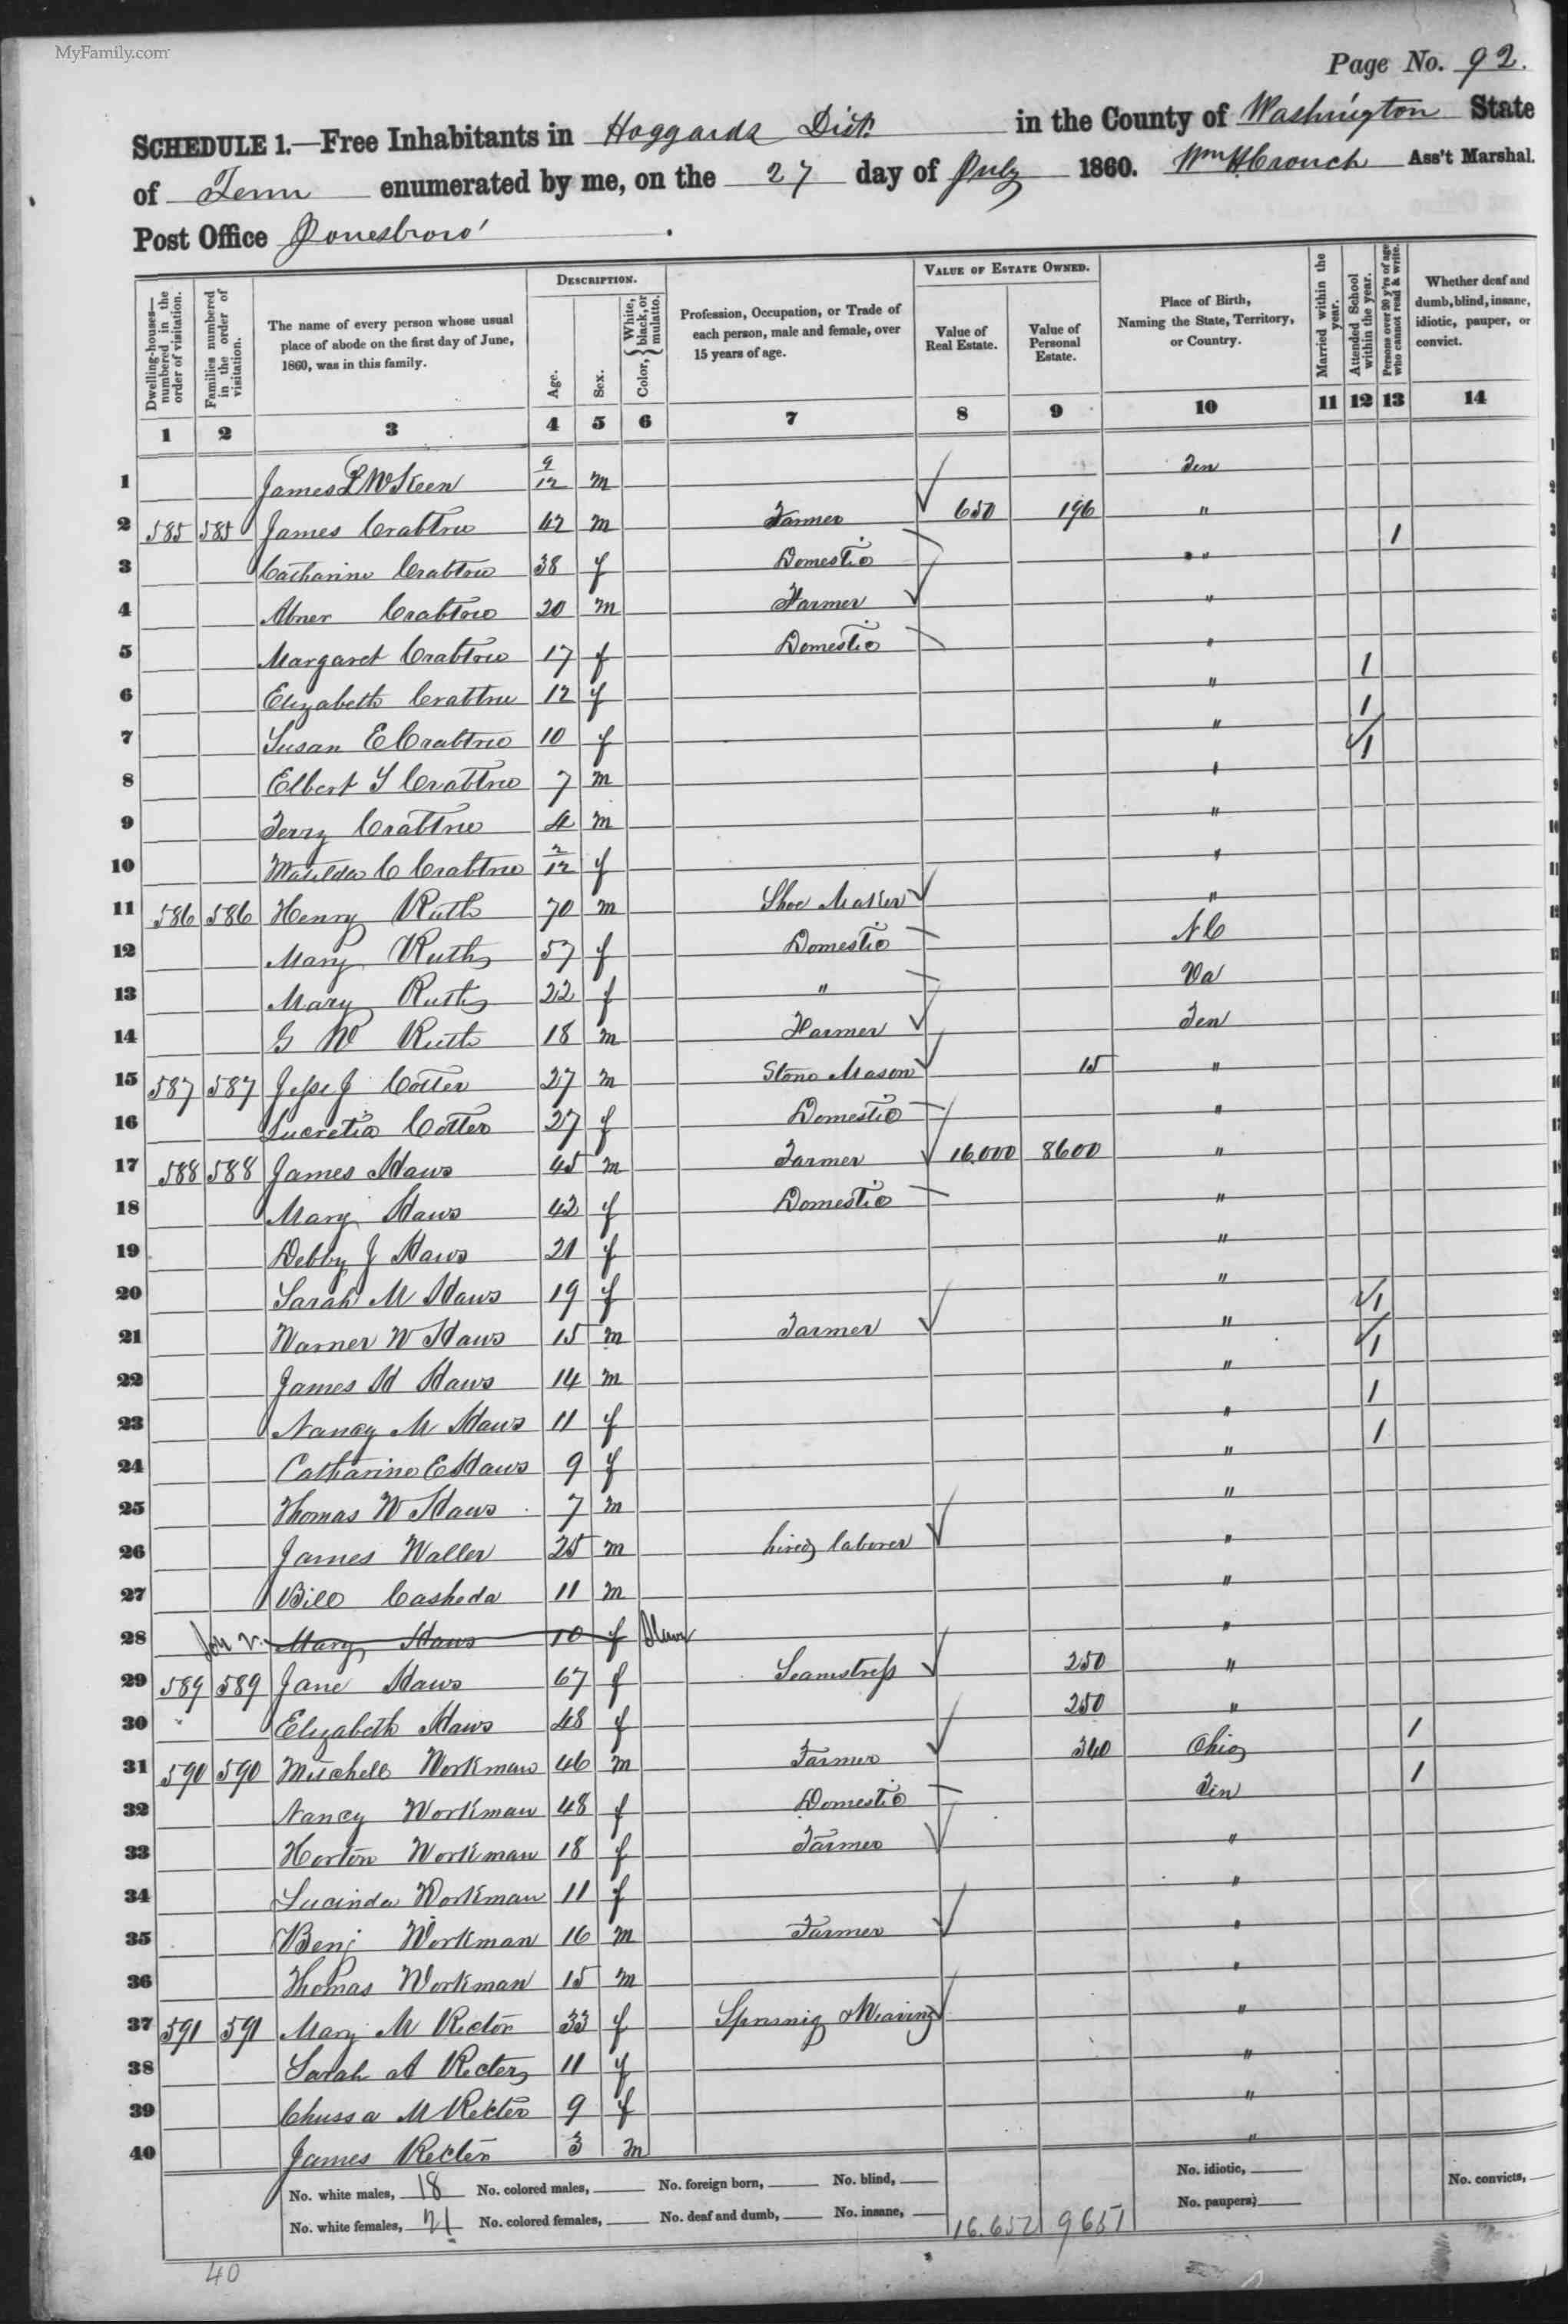 MyFamily.com
Page No. 92.
SCHEDULE 1.—Free Inhabitants in Hoggards Dist. in the County of Washington State
of Tenn enumerated by me, on the 27 day of July 1860. Wm H Crouch Ass't Marshal.
Post Office Jonesboro'
Dwelling-houses—numbered in the order of visitation.
Families numbered in the order of visitation.
The name of every person whose usual place of abode on the first day of June, 1860, was in this family.
DESCRIPTION.
Age.
Sex.
Color, { White, black, or mulatto.
Profession, Occupation, or Trade of each person, male and female, over 15 years of age.
VALUE OF ESTATE OWNED.
Value of Real Estate.
Value of Personal Estate.
Place of Birth, Naming the State, Territory, or Country.
Married within the year.
Attended School within the year.
Persons over 20 y'rs of age who cannot read & write.
Whether deaf and dumb, blind, insane, idiotic, pauper, or convict.
1 2 3 4 5 6 7 8 9 10 11 12 13 14
1 James 9/12 m Ten
2 585 585 James Crabtree 42 m Farmer 650 196 "
3 Catharine Crabtree 38 f Domestic " 1
4 Abner Crabtree 20 m Farmer "
5 Margaret Crabtree 17 f Domestic "
6 Elizabeth Crabtree 12 f " 1
7 Susan E Crabtree 10 f " 1
8 Elbert S Crabtree 7 m " 1
9 Terry Crabtree 4 m "
10 Matilda C Crabtree 2/12 f "
11 586 586 Henry Ruth 70 m Shoe Maker "
12 Mary Ruth 57 f Domestic N C
13 Mary Ruth 22 f " Va
14 G W Ruth 18 m Farmer Ten
15 587 587 Jesse J Cotter 27 m Stone Mason 15 "
16 Lucretia Cotter 27 f Domestic "
17 588 588 James Haws 45 m Farmer 16.000 8600 "
18 Mary Haws 42 f Domestic "
19 Debby J Haws 21 f "
20 Sarah M Haws 19 f "
21 Warner W Haws 15 m Farmer " 1
22 James H Haws 14 m " 1
23 Nancy M Haws 11 f " 1
24 Catharine E Haws 9 f " 1
25 Thomas W Haws 7 m "
26 James Waller 25 m hired laborer "
27 Bill Casheda 11 m "
28 Mary Haws 10 f Slave "
29 589 589 Jane Haws 67 f Seamstress 250 "
30 Elizabeth Haws 48 f 250 "
31 590 590 Mitchell Workman 46 m Farmer 340 Ohio 1
32 Nancy Workman 48 f Domestic Ten 1
33 Horton Workman 18 f Farmer "
34 Lucinda Workman 11 f "
35 Benj Workman 16 m Farmer "
36 Thomas Workman 15 m "
37 591 591 Mary M Rector 33 f Spinnig & Weaving "
38 Sarah A Rector 11 f "
39 M Rector 9 f "
40 James Rector 3 m "
No. white males, 18 No. colored males, No. foreign born, No. blind, No. idiotic, No. convicts,
No. white females, 21 No. colored females, No. deaf and dumb, No. insane, 16.652 9651 No. paupers,
40